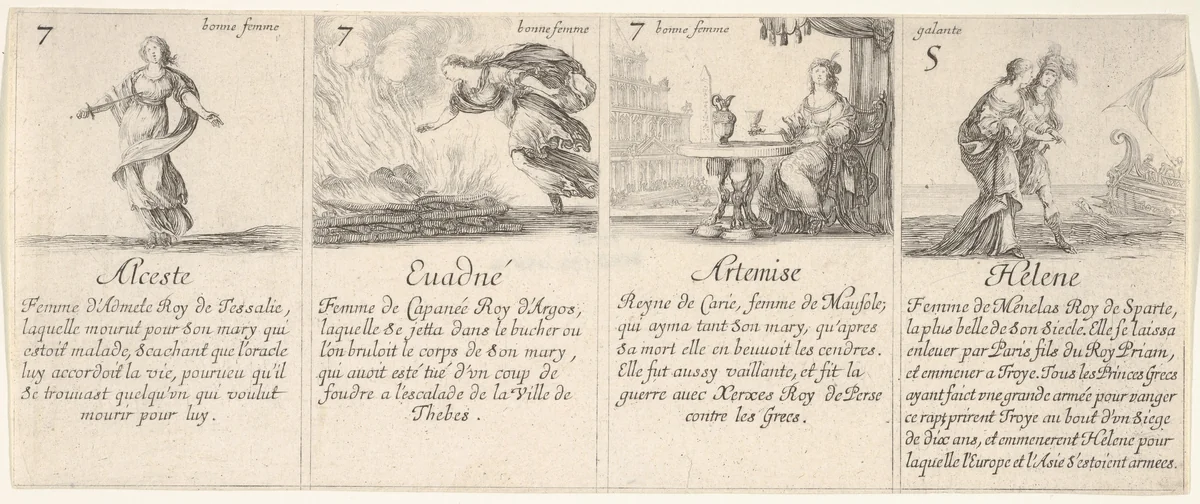 7 bonne femme
Alceste
Femme d'Admete Roy de Tessalie,
laquelle mourut pour son mary qui
estoit malade, scachant que l'oracle
luy accordoit la vie, pourueu qu'il
se trouuast quelqu'vn qui voulut
mourir pour luy.
7 bonne femme
Euadné
Femme de Capaneé Roy d'Argos,
laquelle se jetta dans le bucher ou
l'on bruloit le corps de son mary,
qui auoit esté tué d'vn coup de
foudre a l'escalade de la Ville de
Thebes.
7 bonne femme
Artemise
Reyne de Carie, femme de Mausole;
qui ayma tant son mary, qu'apres
sa mort elle en beuuoit les cendres.
Elle fut aussy vaillante, et fit la
guerre auec Xerxes Roy de Perse
contre les Grecs.
galante
S
Hélene
Femme de Ménelas Roy de Sparte,
la plus belle de son siecle. Elle se laissa
enleuer par Paris fils du Roy Priam,
et emmener a Troye. Tous les Princes Grecs
ayant faict vne grande armée pour vanger
ce rapt prirent Troye au bout d'vn siege
de dix ans, et emmenerent Hélene pour
laquelle l'Europe et l'Asie s'estoient armees.